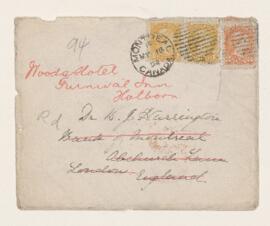 94
MONTREAL
MY 19
CANADA
Woods Hotel
Furnival Inn
Holborn
Rd Dr B. J. Harrington
Bank of Montreal
Abchurch Lane
London
England